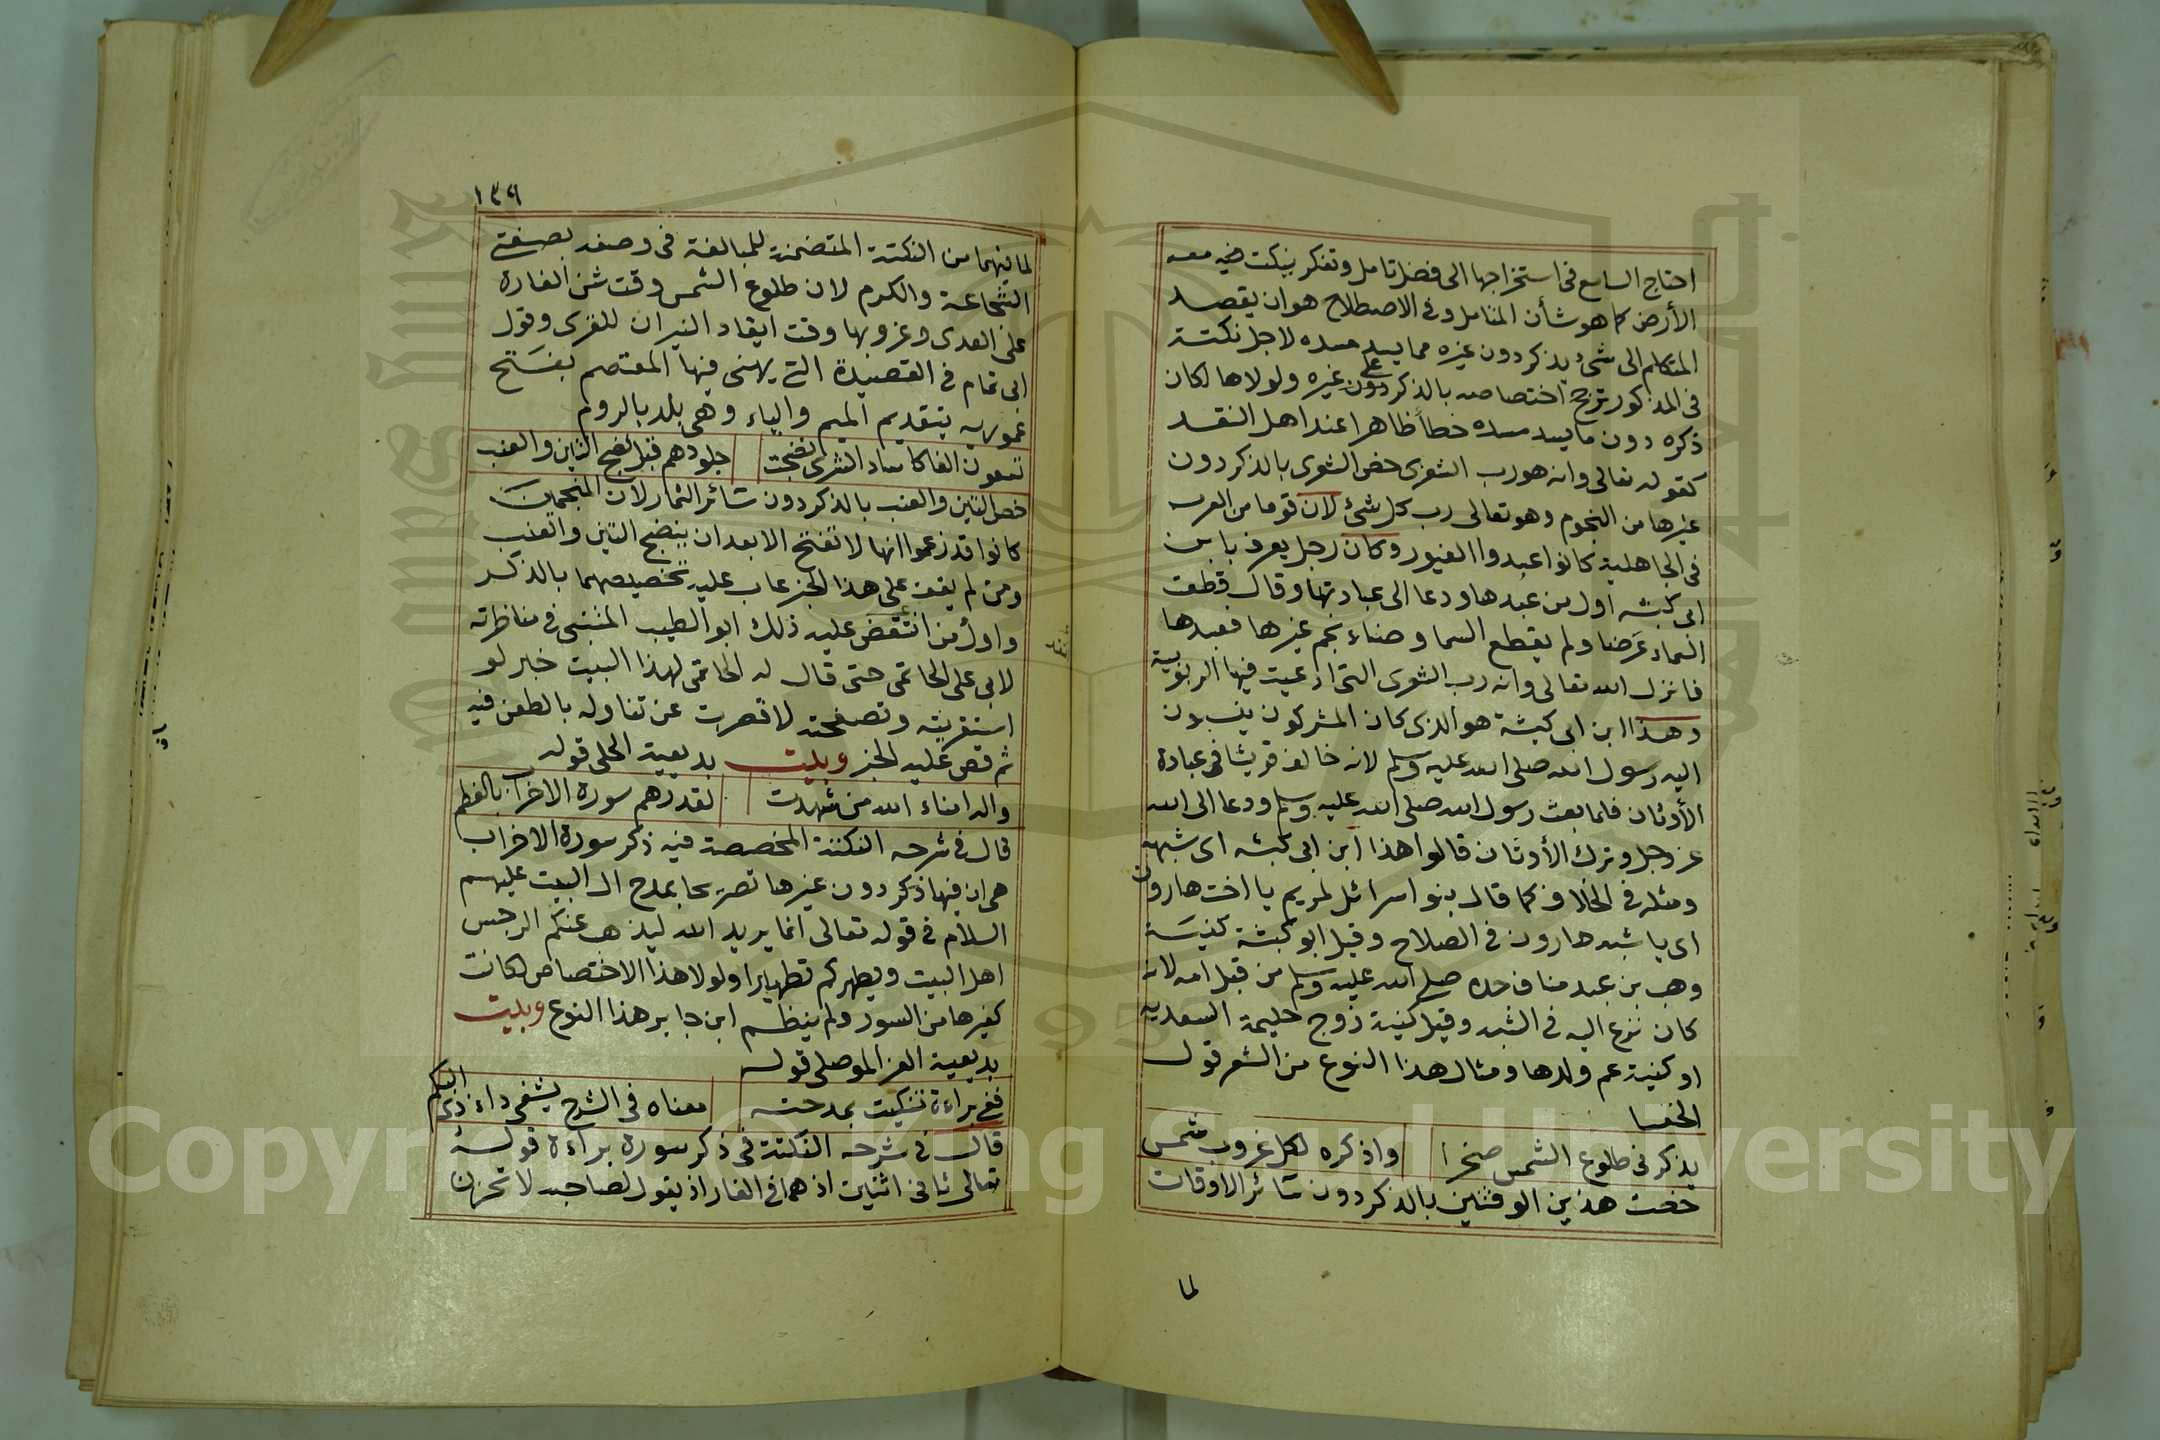 احتاج السامع في استخراجها الى فضل تامل وتفكر ينكت فيه معه
الأرض كما هو شأن المتامل وفي الاصطلاح هو ان يقصد
المتكلم الى شئ يذكر دون غيره مما يسد مسده لاجل نكتة
في المذكور ترجح اختصاصه بالذكر دون غيره ولولاها لكان
ذكره دون ما يسد مسده خطأ ظاهرا عند اهل النقد
كقوله تعالى وانه هو رب الشعرى خص الشعرى بالذكر دون
غيرها من النجوم وهو تعالى رب كل شئ لان قوما من العرب
في الجاهلية كانوا عبدوا العبور وكان رجل يعرف بابن
ابي كبشه اول من عبدها ودعا الى عبادتها وقال قطعت
السماء عرضا ولم يقطع السما وضناء نجم غيرها فعبدها
فانزل الله تعالى وانه رب الشعرى التي ادعيت فيها الربوبية
وهذا ابن ابي كبشة هو الذى كان المشركون ينسبون
اليه رسول الله صلى الله عليه وسلم لانه خالف قريشا في عبادة
الأوثان فلما بعث رسول الله صلى الله عليه وسلم ودعا الى الله
عز وجل وترك الأوثان قالوا هذا ابن ابي كبشه اى شبهه
ومثله في الخلاف كما قال بنو اسرائل لمريم يا اخت هارون
اى يا شبه هارون في الصلاح وقيل ابو كبشة كنيسة
وهب بن عبد مناف جده صلى الله عليه وسلم من قبل امه لانه
كان نزع اليه في الشبه وقيل كنية زوج حليمة السعديه
او كنية عم ولدها ومثال هذا النوع من الشعر قول
الخنسا
يذكرني طلوع الشمس صخرا واذكره لكل غروب شمس
خصت هذين الوقتين بالذكر دون سائر الاوقات
لما
١٣٦
لما فيهما من النكتة المتضمنة للمبالغة في وصفه بصفتي
الشجاعة والكرم لان طلوع الشمس وقت شن الغارة
على العدى وغروبها وقت ايقاد النيران للقرى وقول
ابي تمام في القصيدة التي يهنى فيها المعتصم بفتح
عمورية بتقديم الميم والياء وهي بلد بالروم
تسعون الفا كاساد الشرى نضجت جلودهم قبل نضج التين والعنب
خص التين والعنب بالذكر دون سائر الثمار لان المنجمين
كانوا قد زعموا انها لا تفتح الا بعد ان ينضج التين والعنب
ومن لم يقف على هذا الخبر عاب عليه تخصيصهما بالذكر
واول من انتقض عليه ذلك ابو الطيب المتنبي في مناظرته
لابي على الحاتمي حتى قال له الحاتمي لهذا البيت خبر لو
استقريته وتصفحته لاقصرت عن تناوله بالطعن فيه
ثم قص عليه الخبر وبيت بديعية الحلي قوله
واله امناء الله من شهدت لقدرهم سورة الاحزاب بالعظم
قال في شرحه النكتة المخصصة فيه ذكر سورة الاحزاب
هي ان فيها ذكر دون غيرها تصريحا بمدح ال البيت عليهم
السلام في قوله تعالى انما يريد الله ليذهب عنكم الرجس
اهل البيت ويطهركم تطهيرا ولولا هذا الاختصاص لكانت
كغيرها من السور ولم ينظم ابن جابر هذا النوع وبيت
بديعية العز الموصلي قوله
ففي براءة تنكيت بمدحته معناه في الشرح يشفي داء ذي البكم
قال في شرحه النكتة في ذكر سورة براءة قوله
تعالى ثاني اثنين اذ هما في الغار اذ يقول لصاحبه لا تحزن
Copyright © King Saud University